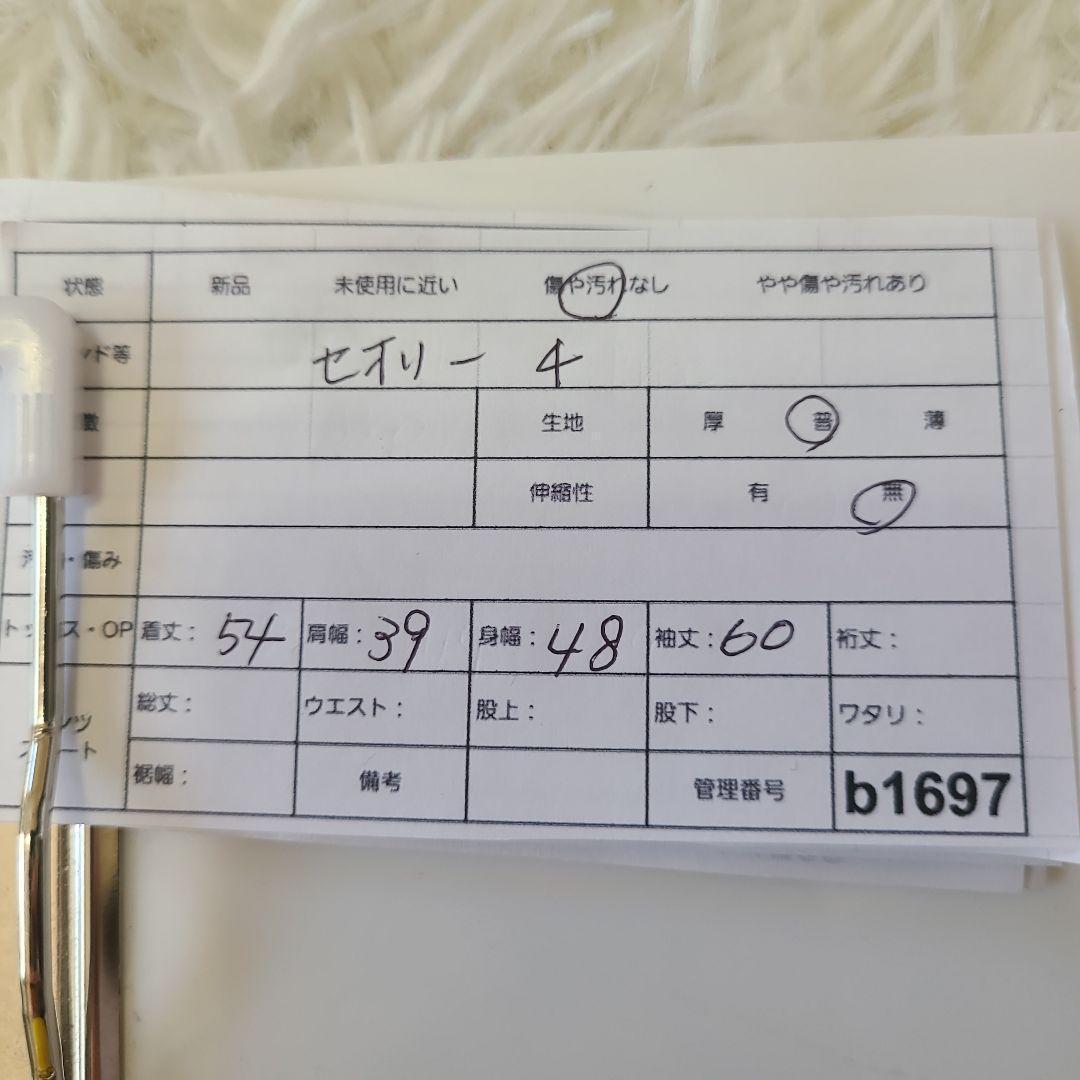 状態 新品 未使用に近い 傷や汚れなし やや傷や汚れあり
ンド等 セオリー 4
数 生地 厚 普 薄
伸縮性 有 無
汚れ・傷み
トップス・OP 着丈: 54 肩幅: 39 身幅: 48 袖丈: 60 裄丈:
総丈: ウエスト: 股上: 股下: ワタリ:
裾幅: 備考 管理番号 b1697